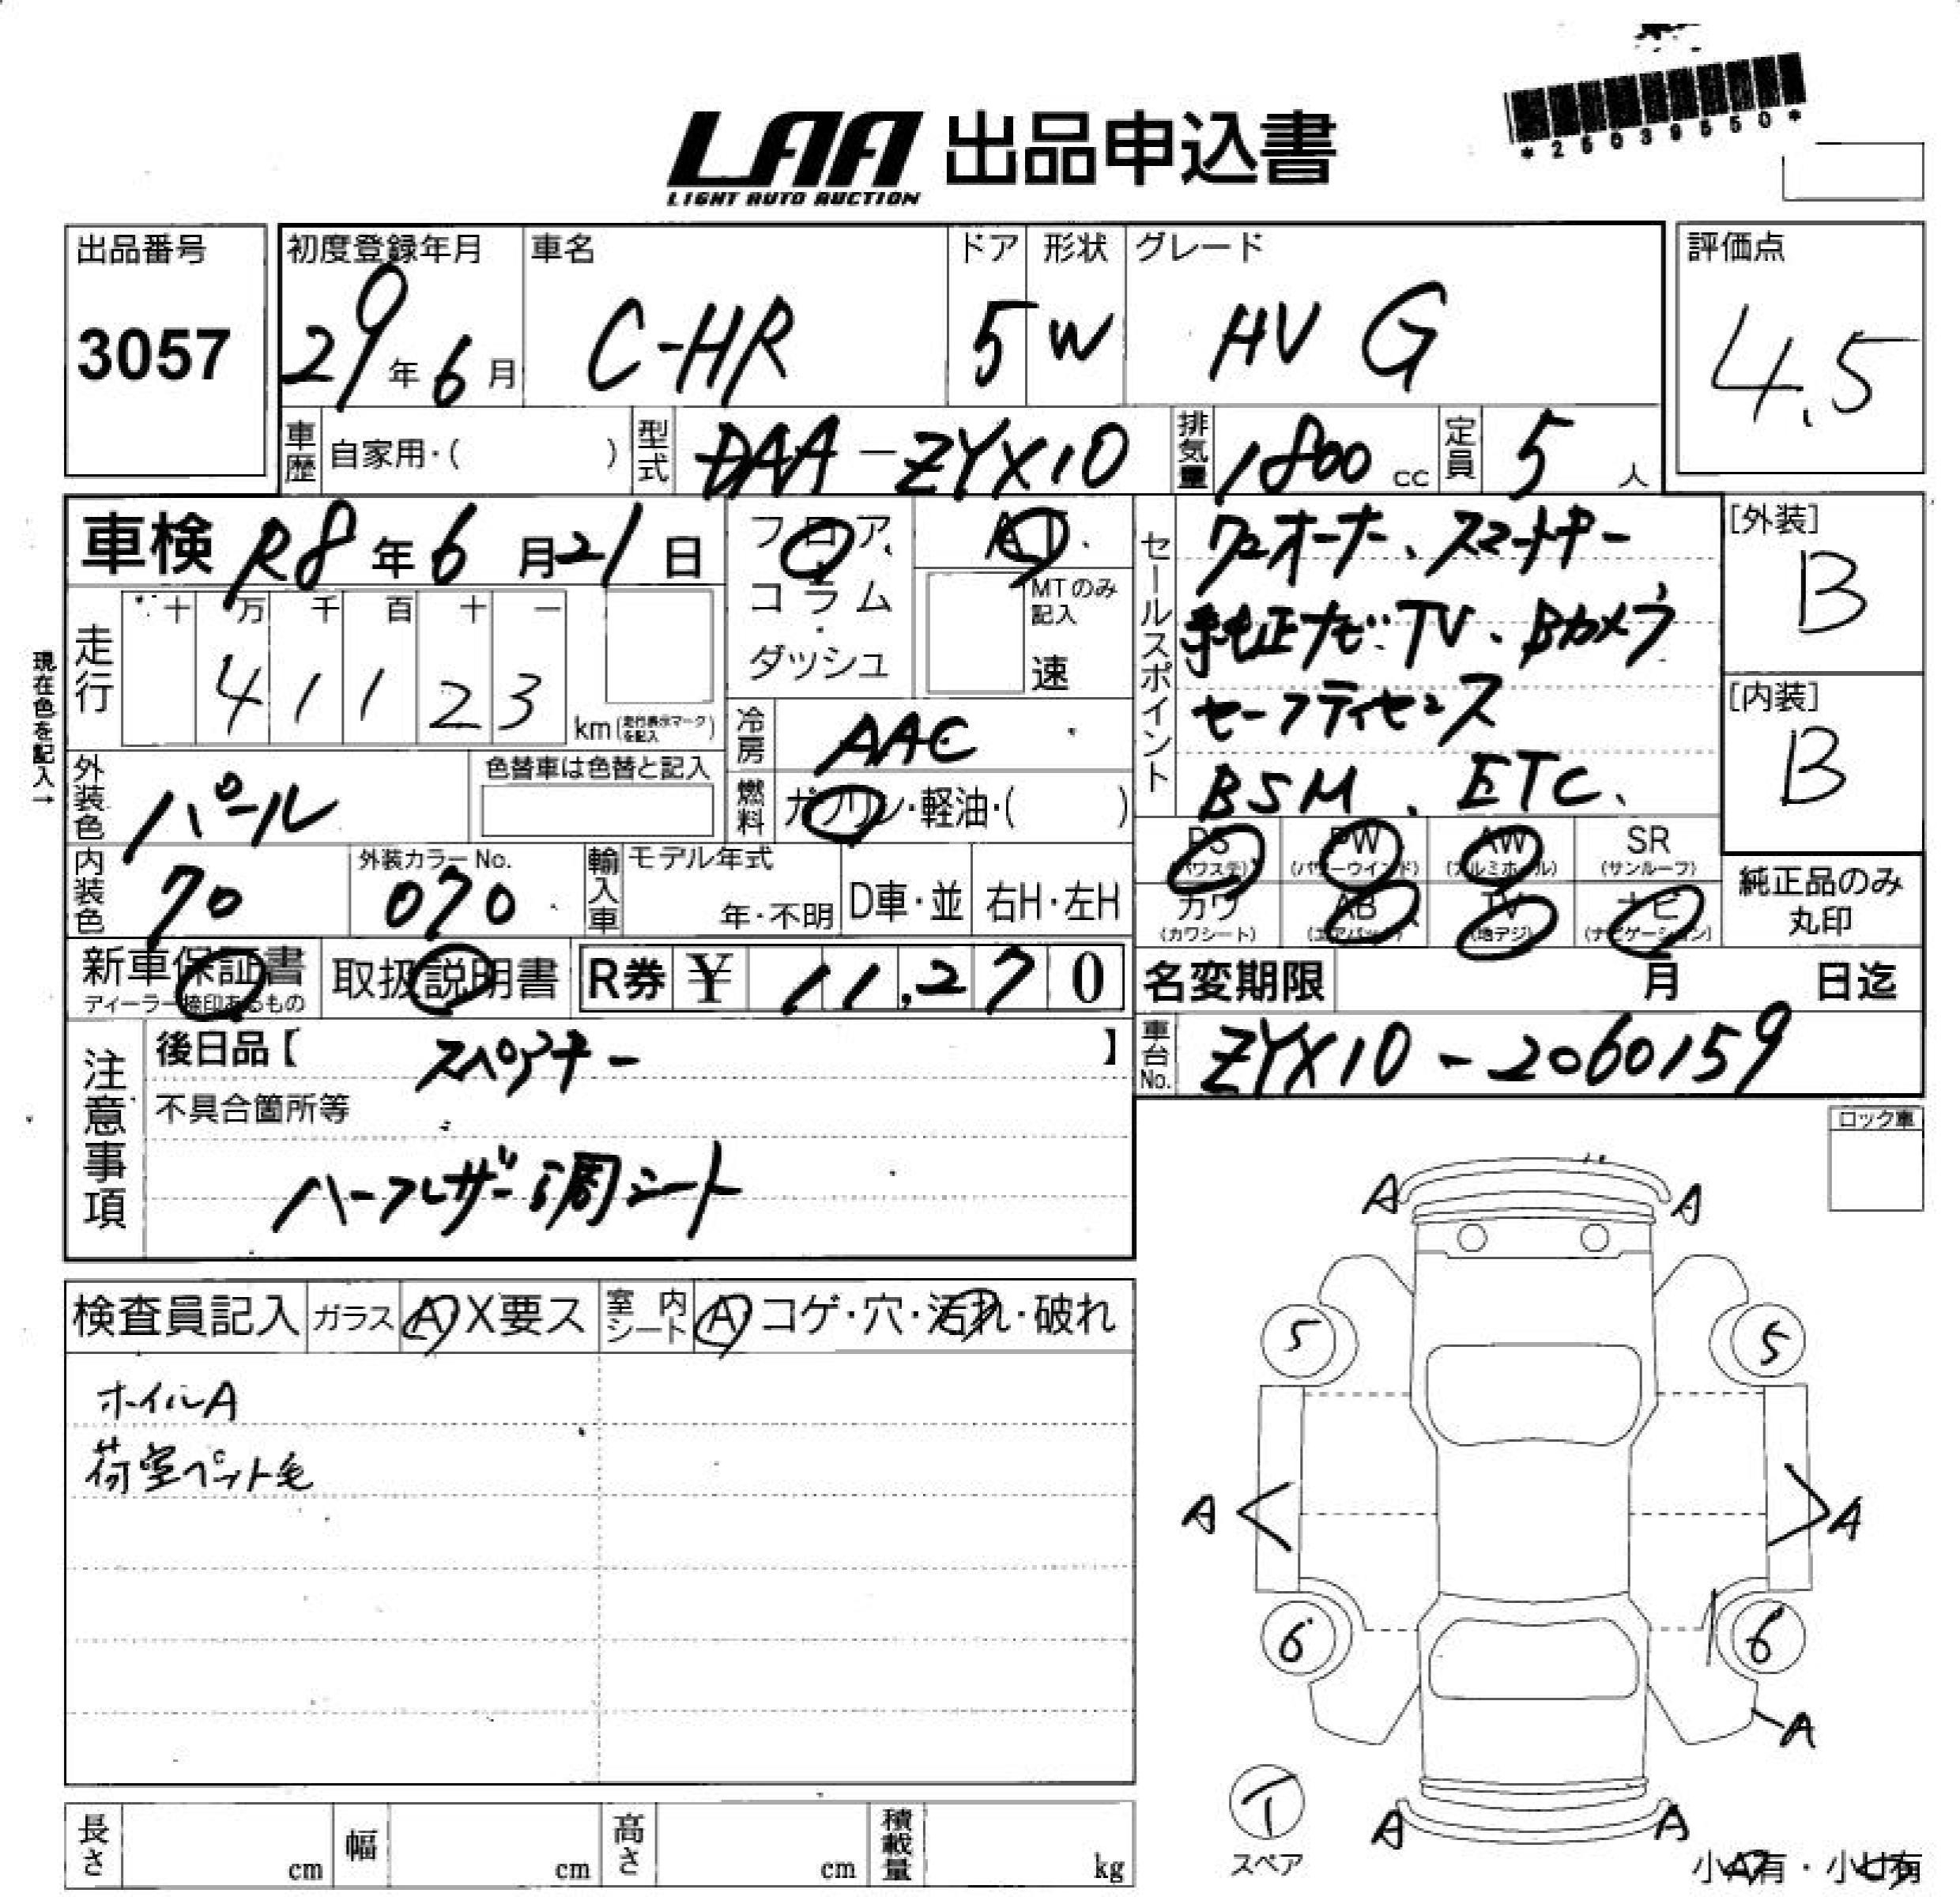 *25039550*
LAA 出品申込書
LIGHT AUTO AUCTION
出品番号 初度登録年月 車名 ドア 形状 グレード 評価点
3057 29年6月 C-HR 5 W HV G 4.5
車歴 自家用・( ) 型式 DAA-ZYX10 排気量 1800 cc 定員 5 人
車検 R8年6月21日 フロア AT
コラム MTのみ記入
ダッシュ 速
セールスポイント
ワンオーナー、スマートキー
純正ナビ・TV、Bカメラ
セーフティセンス
BSM、ETC、
[外装] B
[内装] B
現在色を記入→
走行 十 万 千 百 十 一
4 1 1 2 3 km (走行表示マークを記入)
冷房 AAC
外装色 パール 色替車は色替と記入 燃料 ガソリン・軽油・( )
内装色 70 外装カラーNo. 070 輸入車 モデル年式 年・不明 D車・並 右H・左H
PS (パワステ) PW (パワーウインド) AW (アルミホイル) SR (サンルーフ)
カワ (カワシート) AB (エアバック) TV (地デジ) ナビ (ナビゲーション)
純正品のみ丸印
新車保証書 ディーラー捺印あるもの 取扱説明書 R券 ¥ 11,270 名変期限 月 日迄
車台No. ZYX10-2060159
注意事項 後日品【 スペアキー 】
不具合箇所等
ハーフレザー調シート
ロック車
検査員記入 ガラス A X要ス 室内シート A コゲ・穴・汚れ・破れ
ホイルA
荷室ペット毛
A A
5 5
A A
6 6
A
1
スペア
A A
小A有・小U有
長さ cm 幅 cm 高さ cm 積載量 kg